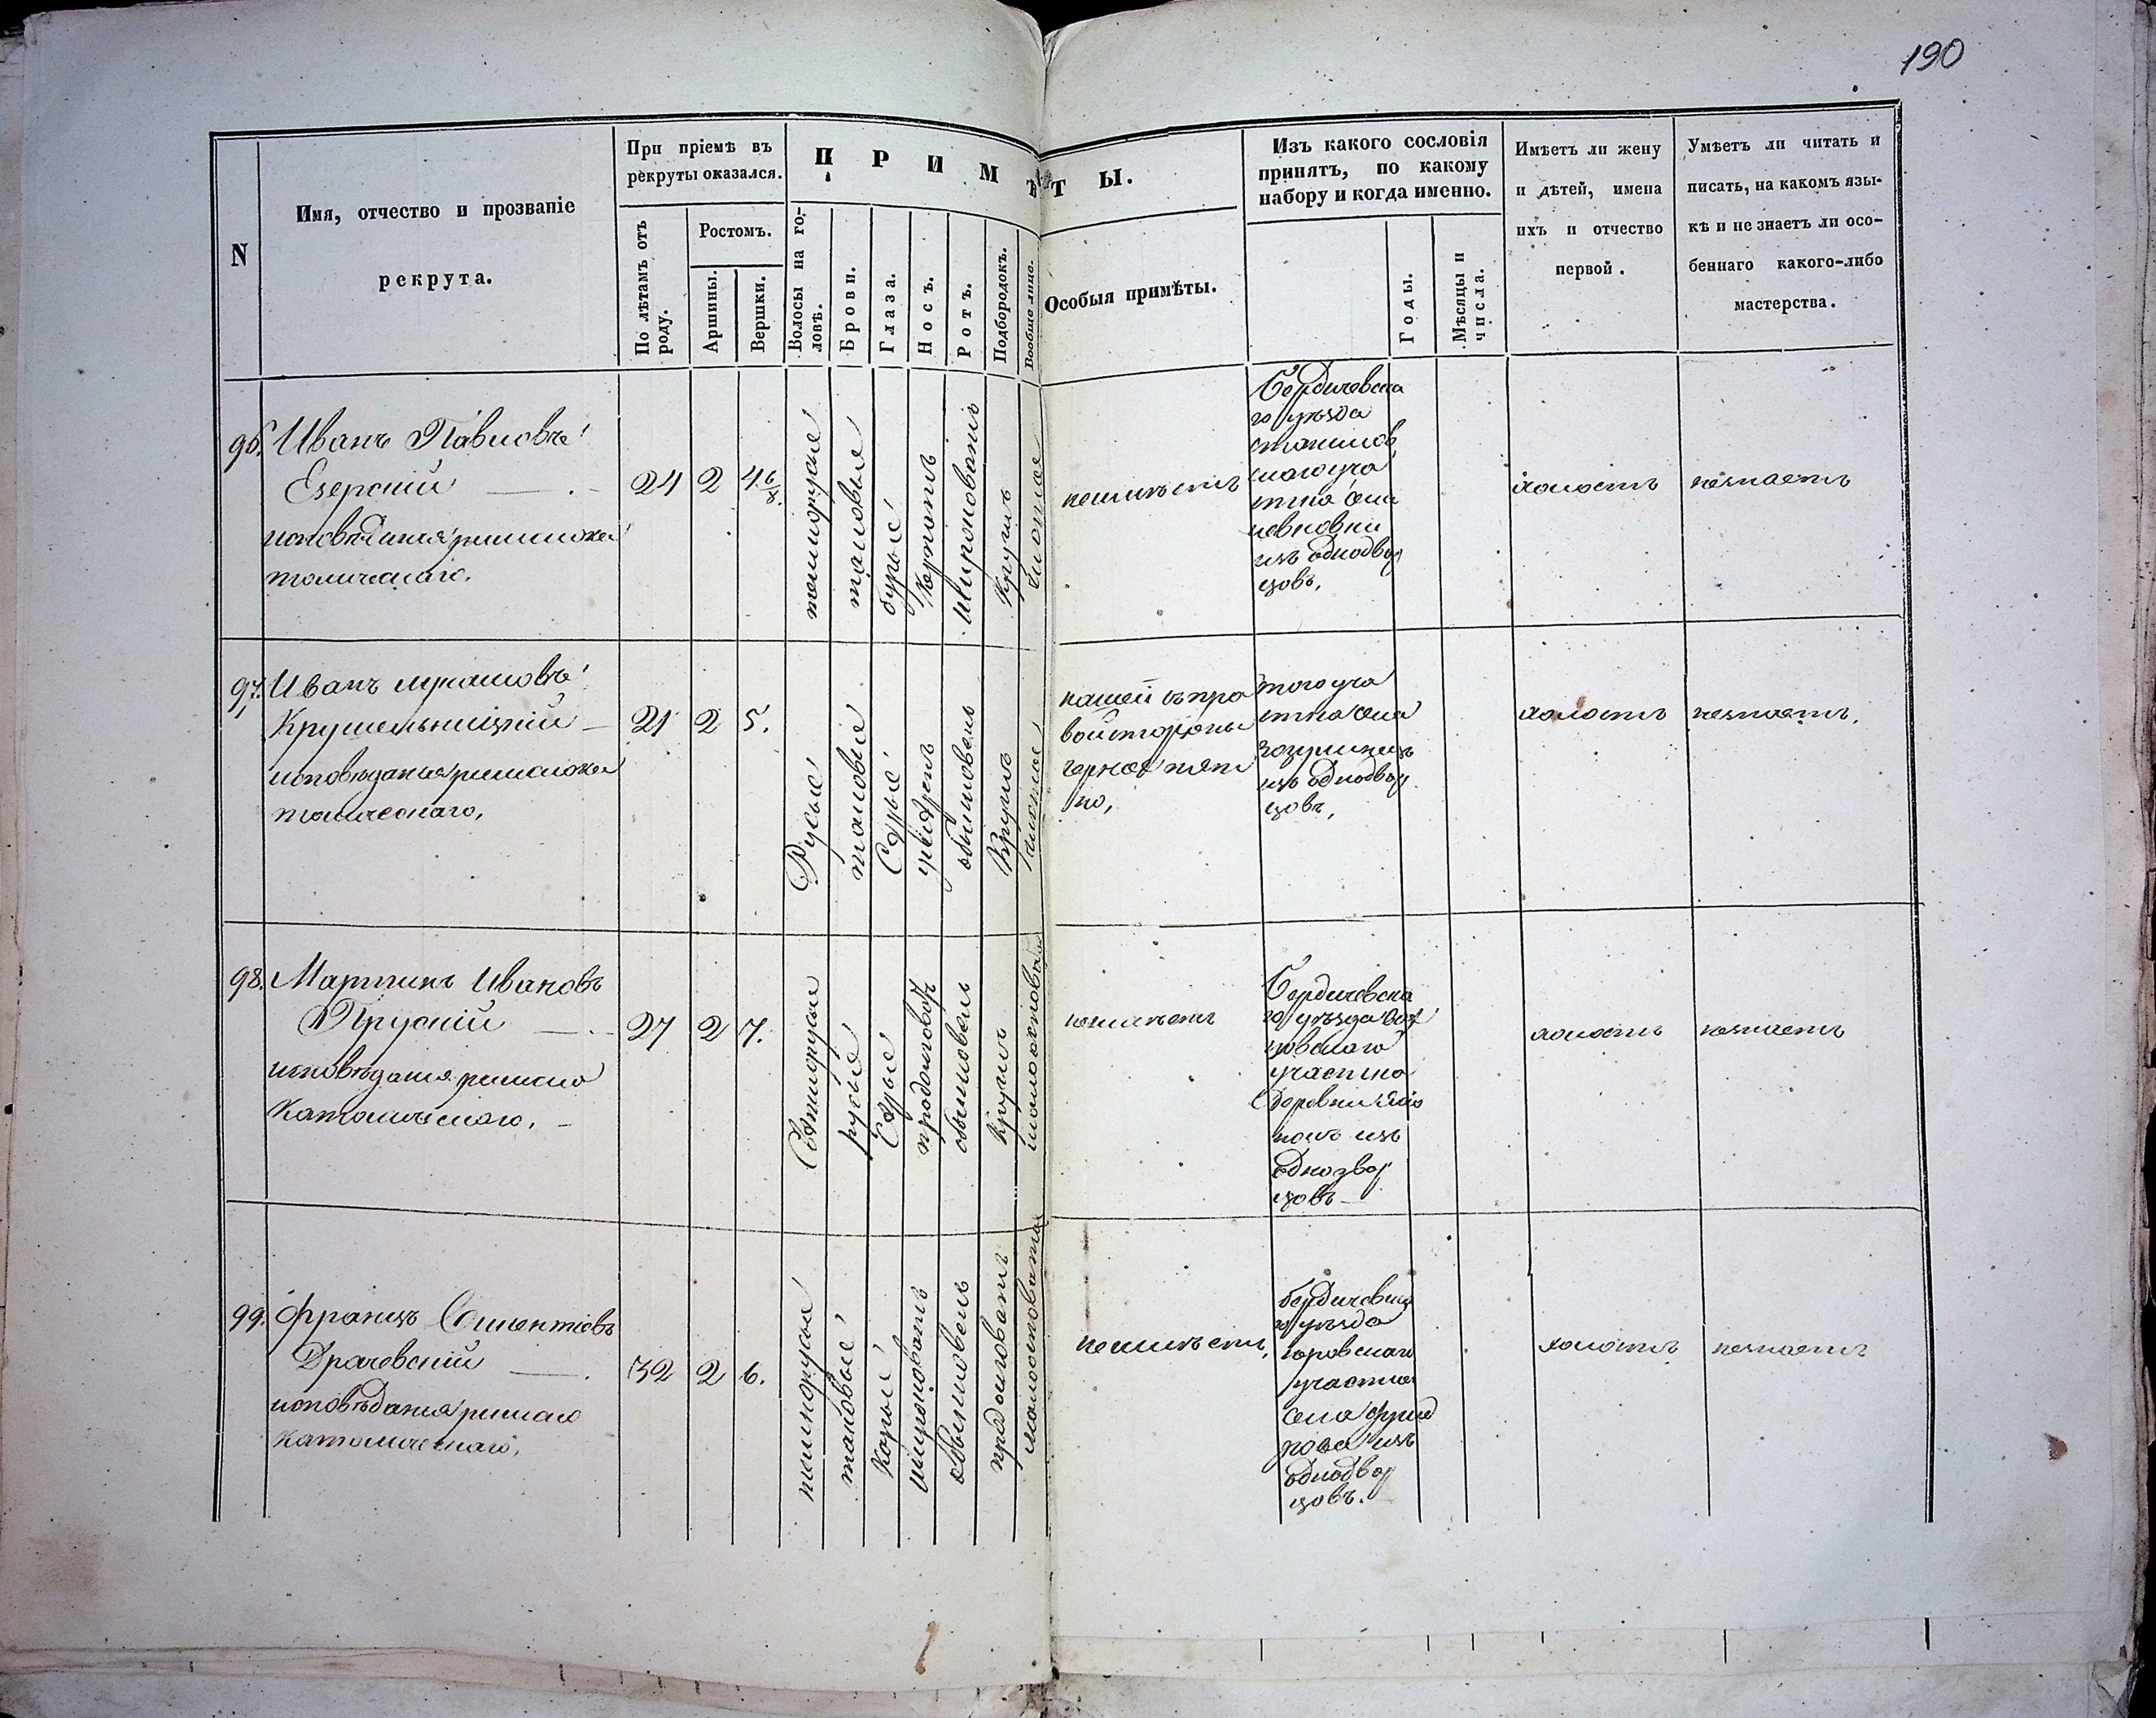 190
N
Имя, отчество и прозваніе
рекрута.
При пріемѣ въ
рекруты оказался.
По лѣтамъ отъ
роду.
Ростомъ.
Аршины.
Вершки.
ПРИМѢТЫ.
Волосы на го-
ловѣ.
Брови.
Глаза.
Носъ.
Ротъ.
Подбородокъ.
Вообще лицо.
Особыя примѣты.
Изъ какого сословія
принятъ, по какому
набору и когда именно.
Годы.
Мѣсяцы и
числа.
Имѣетъ ли жену
и дѣтей, имена
ихъ и отчество
первой.
Умѣетъ ли читать и
писать, на какомъ язы-
кѣ и не знаетъ ли осо-
беннаго какого-либо
мастерства.
96.
Иванъ Павловъ
Езерскій
исповѣданія римско ка
толическаго.
24
2
4 6/8.
темнорусые
таковые
бурые
широковатъ
Круглъ
чистое
неимѣетъ
Бердичевска
го уѣзда
из однодвор
цовъ.
холостъ
незнаетъ
97.
Иванъ Лукашовъ
Крушельницкій
исповѣданія римско ка
толическаго,
21
2
5.
Русые
таковые
Сѣрые
умѣренъ
обыкновенъ
Круглъ
чистое
на шеи съ пра
вой стороны
черное пят
но,
того уча
стка села
изъ однодвор
цовъ,
холостъ
незнаетъ.
98.
Мартинъ Ивановъ
Прускій
исповѣданія римско
Католическаго.
27
2
7.
Свѣтлорусые
русые
Сѣрые
продолговатъ
обыкновенъ
Круглъ
неимѣетъ
Бердичевска
го уѣзда
участка
Деревни
изъ
однодвор
цовъ
холостъ
незнаетъ
99.
Францъ Викентіевъ
Драчевскій
исповѣданія римско
католическаго,
32
2
6.
темнорусые
таковые
Карые
широковатъ
обыкновенъ
продолговатъ
неимѣетъ,
бердичевска
го уѣзда
участка
села
изъ
однодвор
цовъ.
холостъ
незнаетъ